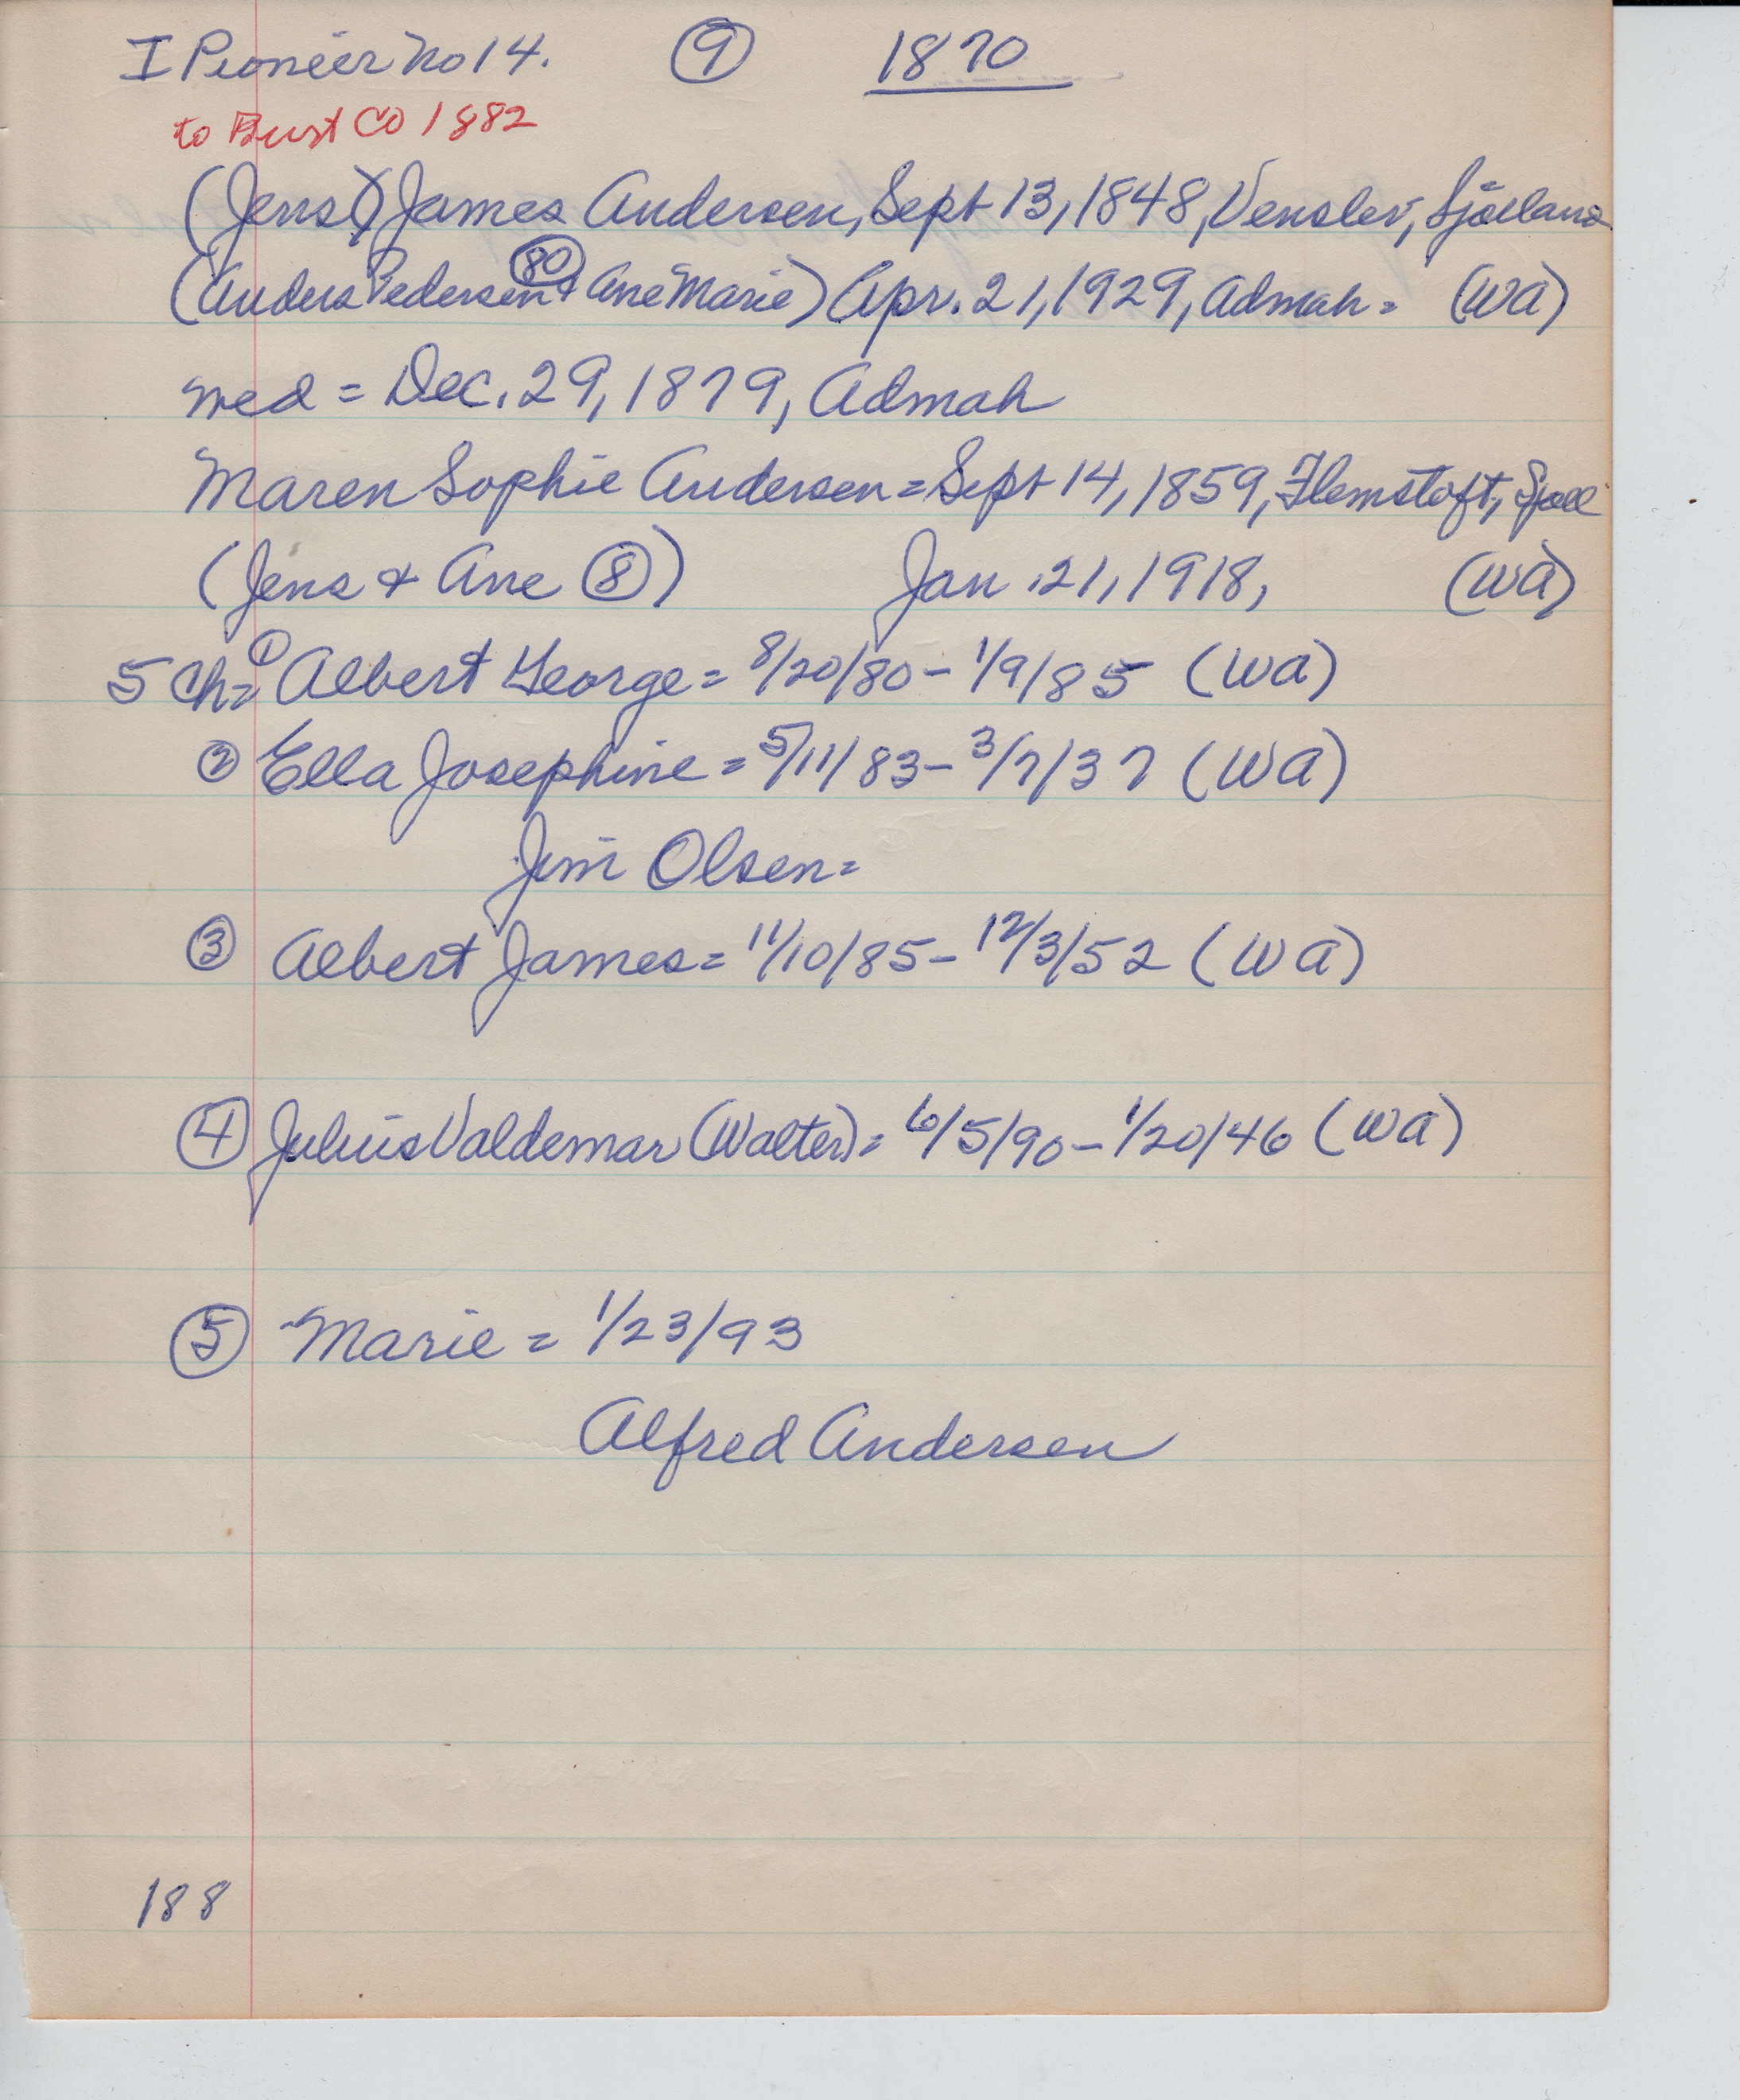 I Pioneer No 14. ⑨ 1870
to Burt Co 1882
(Jens) James Andersen, Sept 13, 1848, Venslev, Sjælland
(Anders Pedersen ⑧⓪ & Ane Marie) Apr. 21, 1929, Admah = (WA)
wed = Dec. 29, 1879, Admah
Maren Sophie Andersen = Sept 14, 1859, Flemstoft, Sjæll
(Jens & Ane ⑧) Jan. 21, 1918, (WA)
5 Ch = ① Albert George = 8/20/80 - 1/9/85 (WA)
② Ella Josephine = 5/11/83 - 3/7/37 (WA)
Jim Olsen =
③ Albert James = 11/10/85 - 12/3/52 (WA)
④ Julius Valdemar (Walter) = 6/5/90 - 1/20/46 (WA)
⑤ Marie = 1/23/93
Alfred Andersen
188